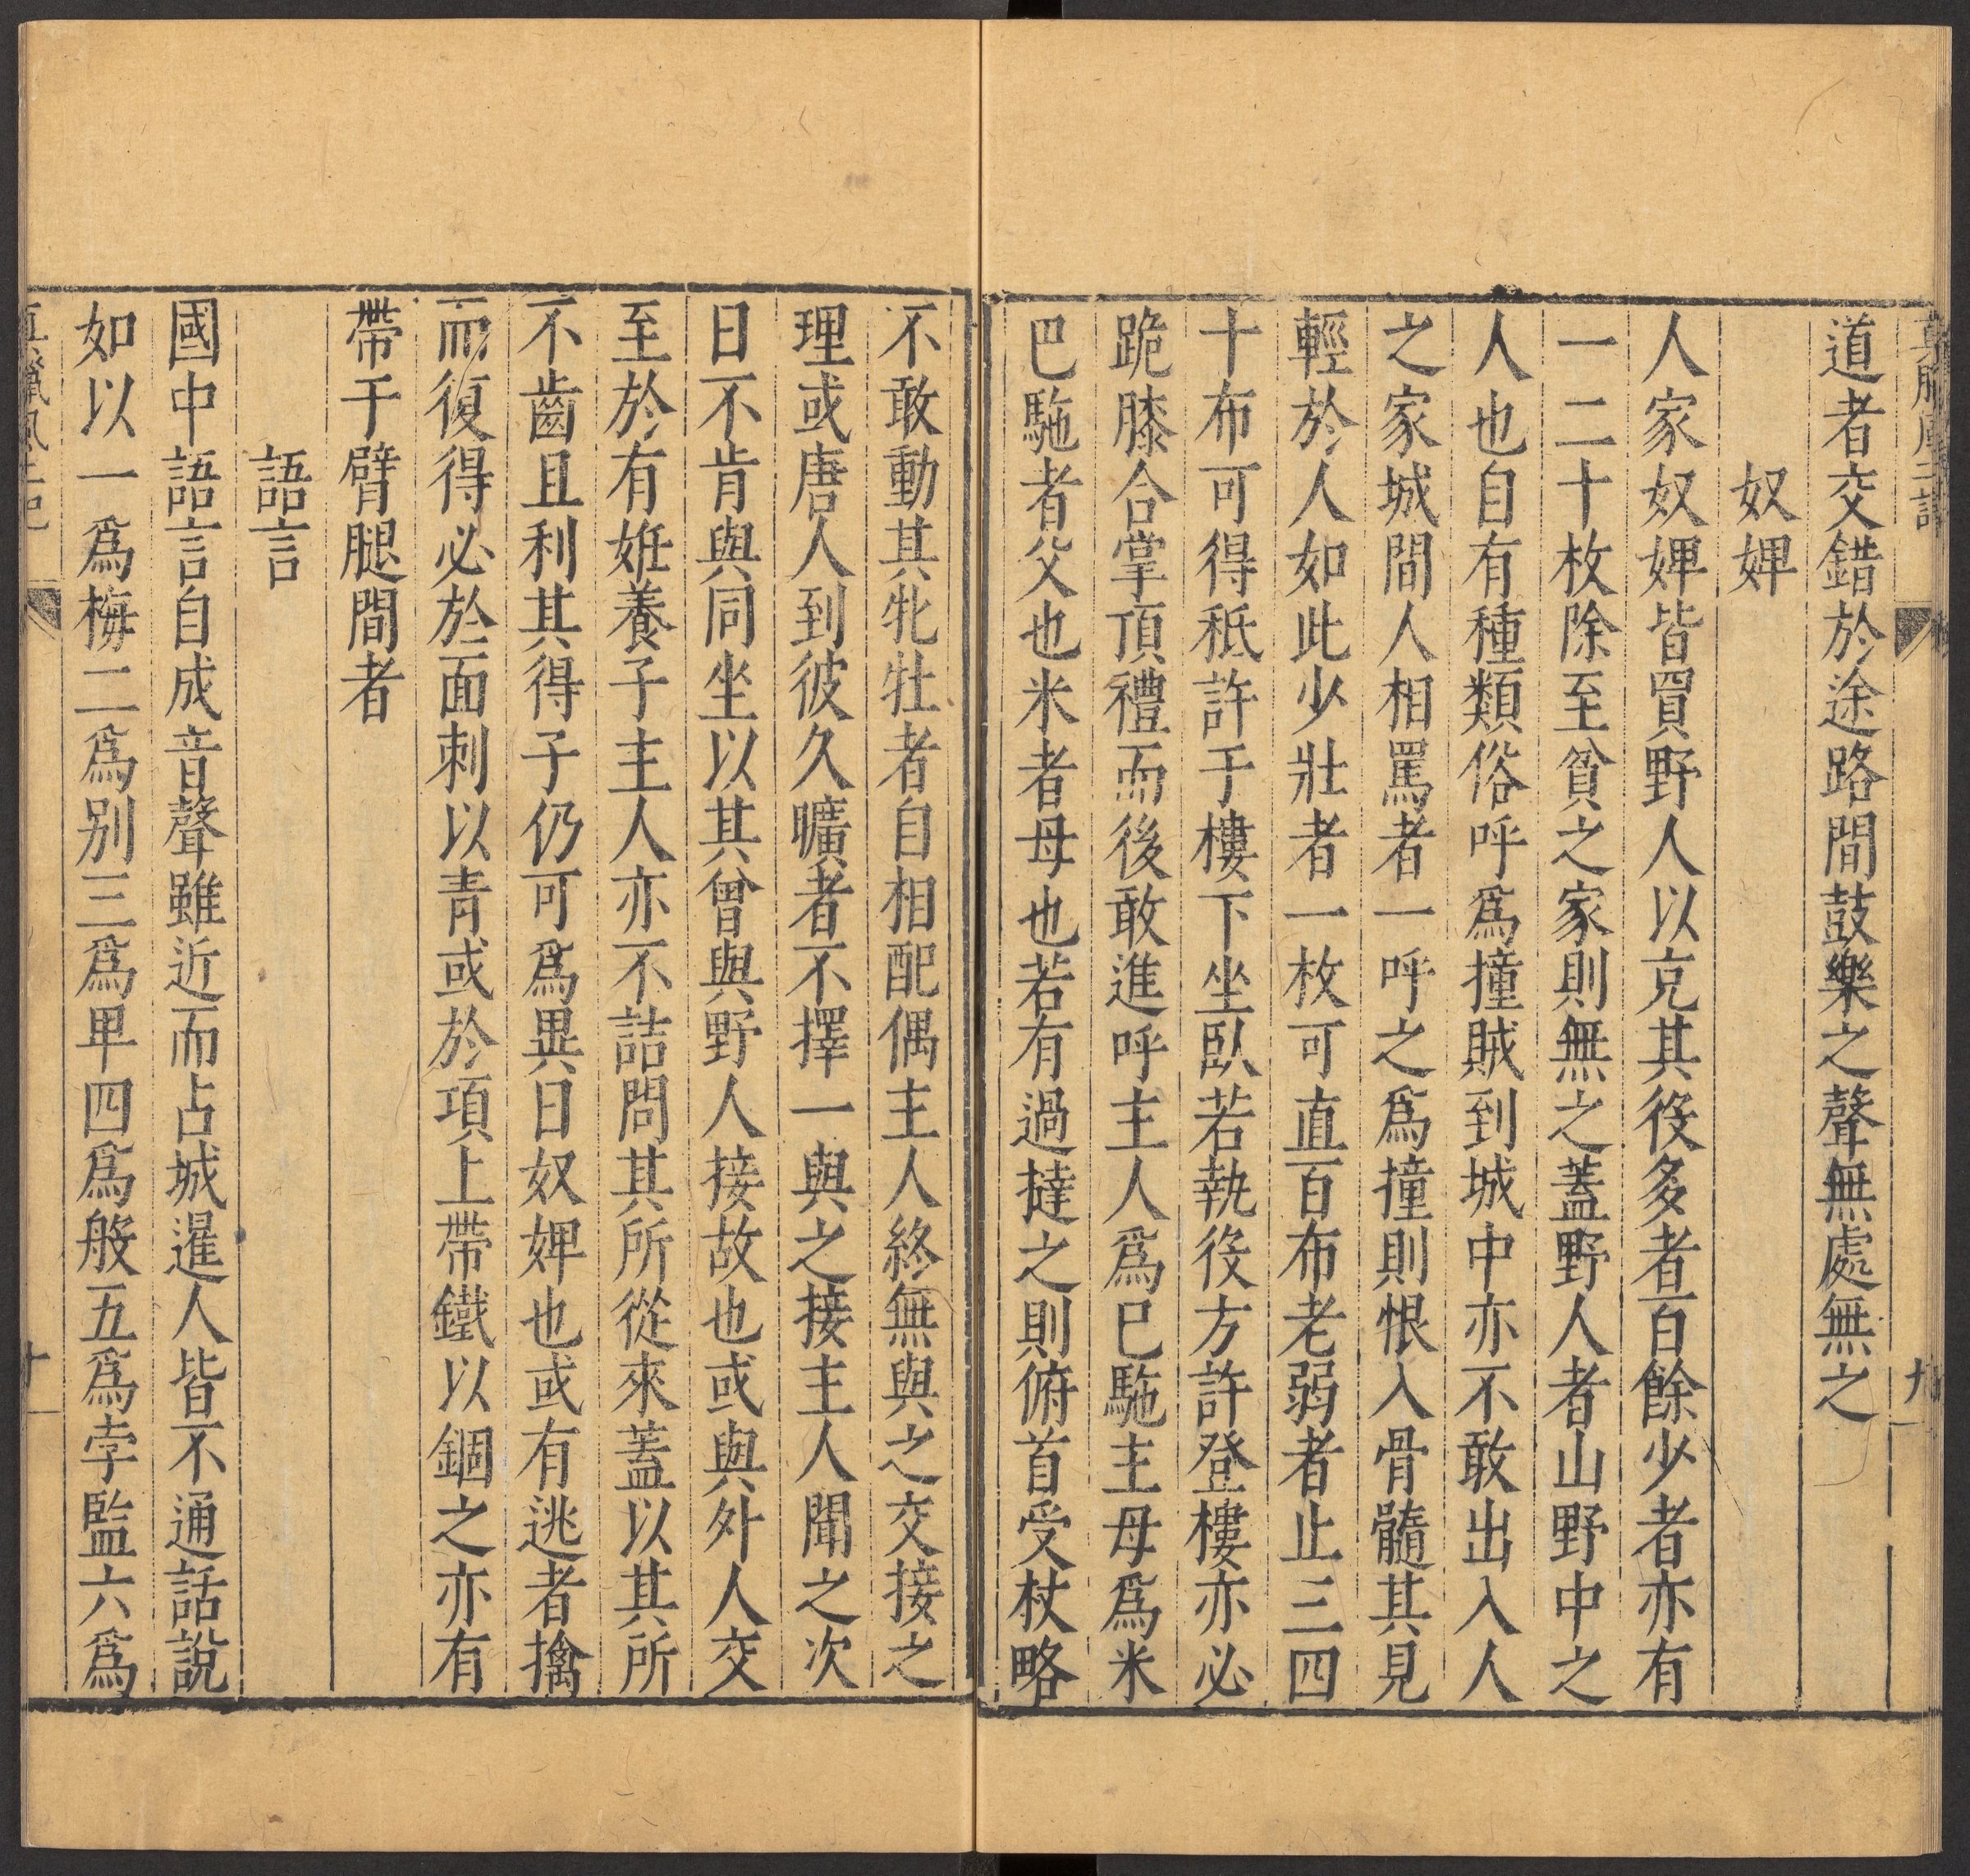 道者交錯於途路間鼓樂之聲無處無之
奴婢
人家奴婢皆買野人以充其役多者百餘少者亦有
一二十枚除至貧之家則無之蓋野人者山野中之
人也自有種類俗呼爲撞賊到城中亦不敢出入人
之家城間人相罵者一呼之爲撞則恨入骨髓其見
輕於人如此少壯者一枚可直百布老弱者止三四
十布可得秖許于樓下坐臥若執役方許登樓亦必
跪膝合掌頂禮而後敢進呼主人爲巴駞主母爲米
巴駞者父也米者母也若有過撻之則俯首受杖略
不敢動其牝牡者自相配偶主人終無與之交接之
理或唐人到彼久曠者不擇一與之接主人聞之次
日不肯與同坐以其曾與野人接故也或與外人交
至於有姙養子主人亦不詰問其所從來蓋以其所
不齒且利其得子仍可爲異日奴婢也或有逃者擒
而復得必於面刺以青或於項上帶鐵以錮之亦有
帶于臂腿間者
語言
國中語言自成音聲雖近而占城暹人皆不通話說
如以一爲梅二爲别三爲卑四爲般五爲孛監六爲